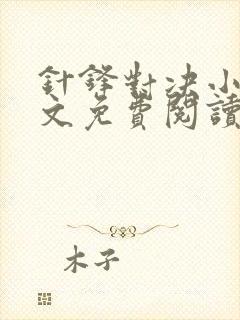 針鋒對决小
文免費閱讀
木子